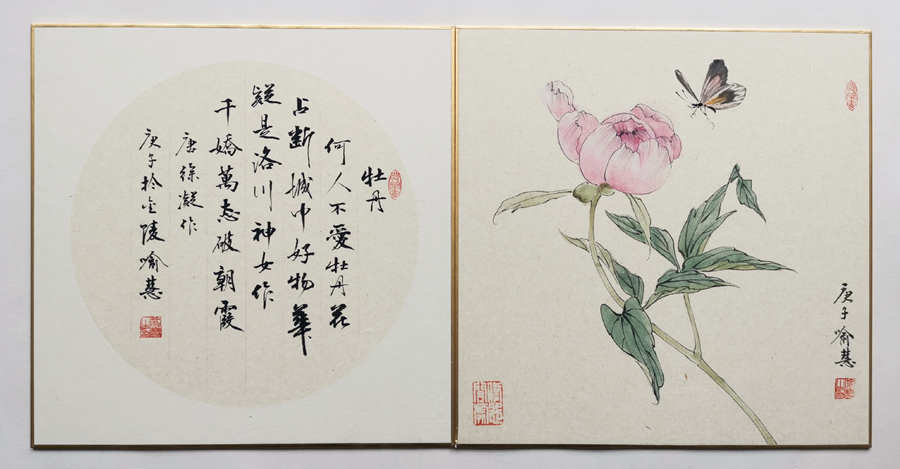 牡丹
何人不愛牡丹花
占斷城中好物華
疑是洛川神女作
千嬌萬态破朝霞
唐徐凝作
庚子於金陵喻慧
庚子喻慧